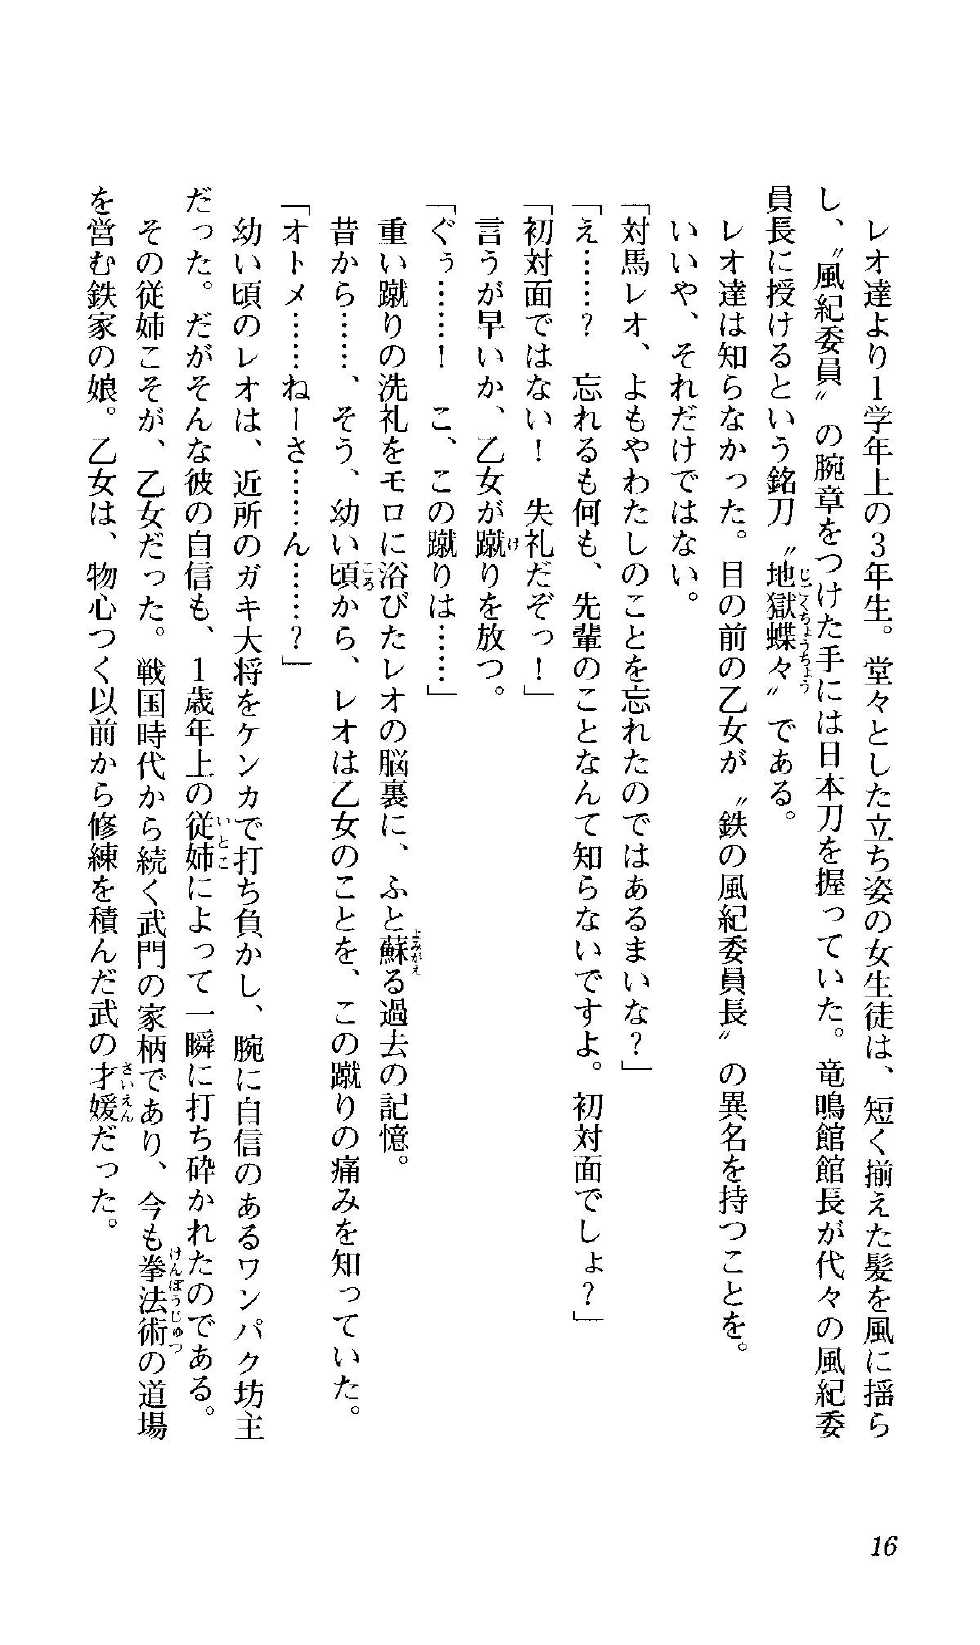 レオ達より1学年上の3年生。堂々とした立ち姿の女生徒は、短く揃えた髪を風に揺ら
し、〝風紀委員〟の腕章をつけた手には日本刀を握っていた。竜鳴館館長が代々の風紀委
員長に授けるという銘刀〝地獄蝶々〟である。
レオ達は知らなかった。目の前の乙女が〝鉄の風紀委員長〟の異名を持つことを。
いいや、それだけではない。
「対馬レオ、よもやわたしのことを忘れたのではあるまいな？」
「え……？　忘れるも何も、先輩のことなんて知らないですよ。初対面でしょ？」
「初対面ではない！　失礼だぞっ！」
言うが早いか、乙女が蹴りを放つ。
「ぐぅ……！　こ、この蹴りは……」
重い蹴りの洗礼をモロに浴びたレオの脳裏に、ふと蘇る過去の記憶。
昔から……、そう、幼い頃から、レオは乙女のことを、この蹴りの痛みを知っていた。
「オトメ……ねーさ……ん……？」
幼い頃のレオは、近所のガキ大将をケンカで打ち負かし、腕に自信のあるワンパク坊主
だった。だがそんな彼の自信も、1歳年上の従姉によって一瞬に打ち砕かれたのである。
その従姉こそが、乙女だった。戦国時代から続く武門の家柄であり、今も拳法術の道場
を営む鉄家の娘。乙女は、物心つく以前から修練を積んだ武の才媛だった。
16